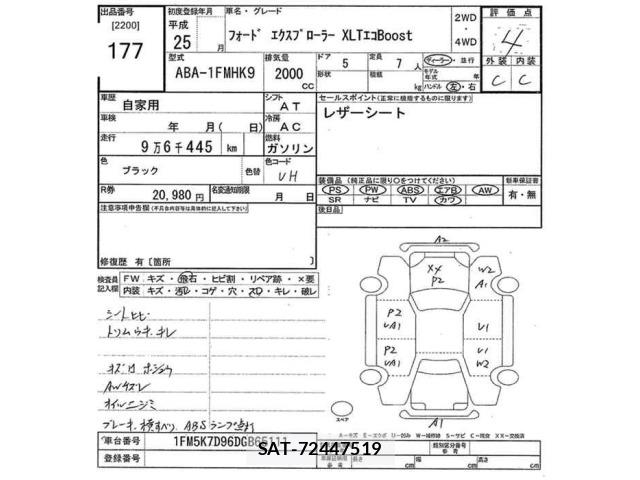 出品番号 初度登録年月 車名・グレード 評価点
[2200] 平成 フォード エクスプローラー XLTエコBoost 2WD・4WD 4
177 25 月
型式 排気量 ドア 定員 ディーラー・並行 外装 内装
ABA-1FMHK9 2000 cc 5 7 人 C C
形状 積載 kg モデル年式 年
ハンドル 左・右
車歴 自家用 シフト AT セールスポイント(正常に機能するものに限ります)
車検 年 月( 日) 冷房 AC レザーシート
走行 9万6千445 km 燃料 ガソリン
色 ブラック 色替 色コード UH
装備品 (純正品に限り○をつけてください) 新車保証書
PS PW ABS エアB AW 有・無
SR ナビ TV カワ
R券 20,980円 名変通知期限 月 日
後日品
注意事項申告欄(不具合内容等は具体的に記入して下さい)
修復歴 有[箇所 ]
検査員記入欄 FW キズ・飛石・ヒビ割・リペア跡・×要
内装 キズ・汚レ・コゲ・穴・スレ・キレ・破レ
シートヒビ
トリムウキ、キレ
キズ
AWキズ
オイルニジミ
ブレーキ ABSランプ点灯
A2
X4
P2
W2
A1
P2
UA1
U1
P2
UA1
U1
W2
A1
スペア
車台番号 1FM5K7D96DGB65111
登録番号
類別区分番号 参考
長さ cm 幅 cm 高さ cm
SAT-72447519